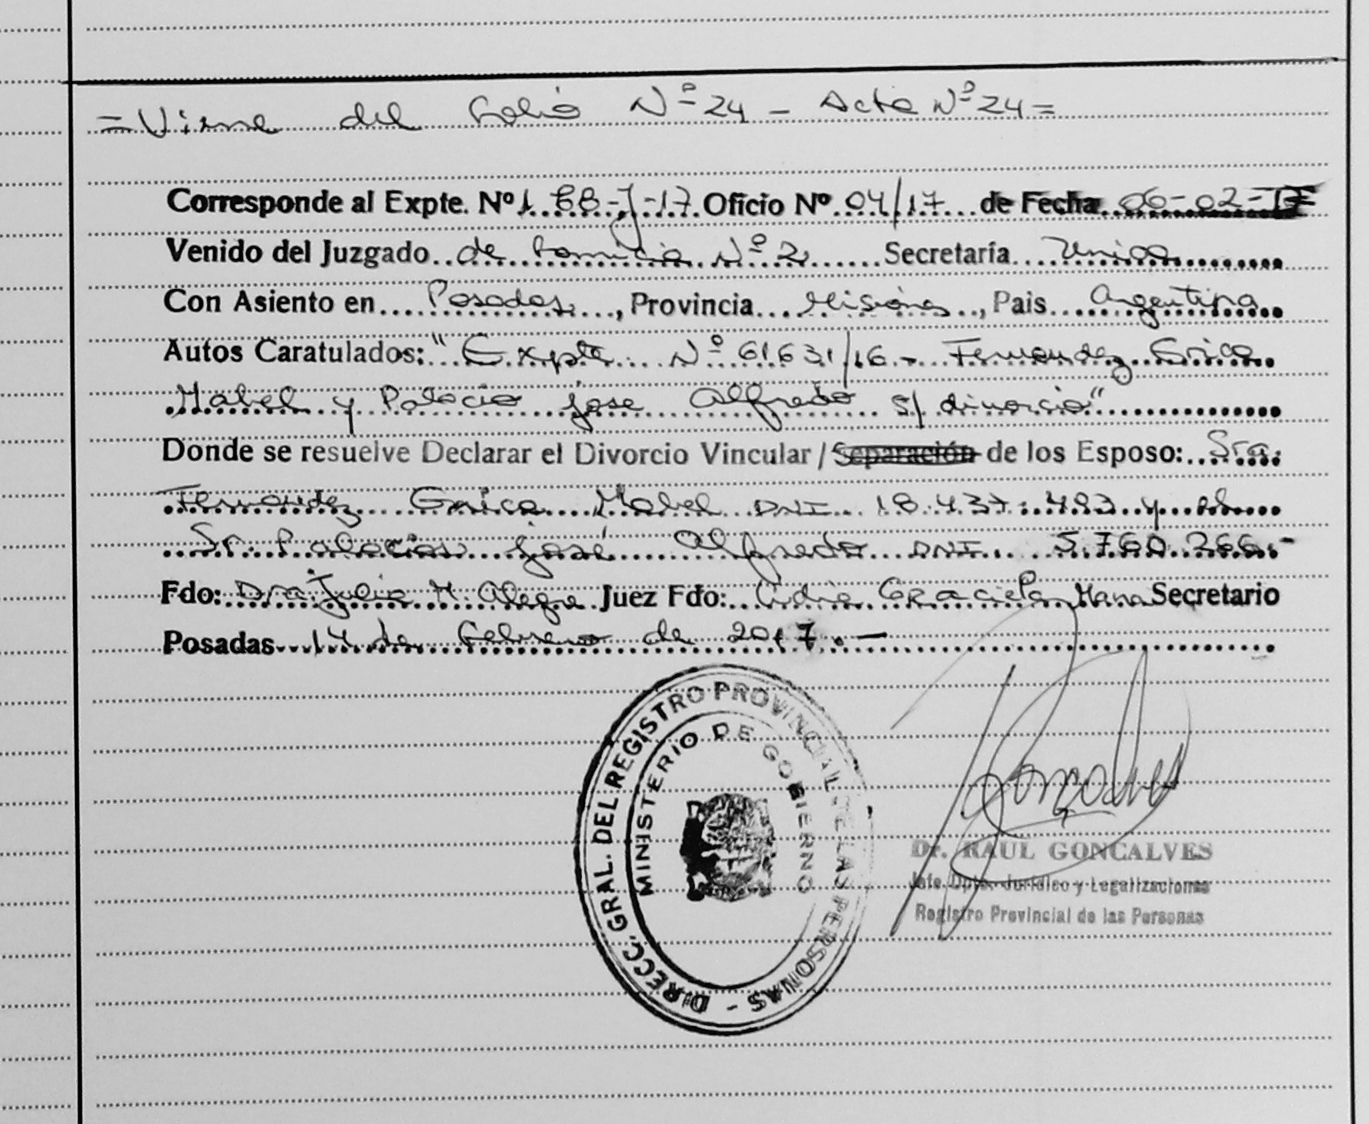 = Viene del Folio Nº 24 - Acta Nº 24 =
Corresponde al Expte. Nº 1 BB-J-17 Oficio Nº 04/17 de Fecha 06-02-17
Venido del Juzgado de Familia Nº 2 Secretaría Unica
Con Asiento en Posadas, Provincia Misiones, Pais Argentina
Autos Caratulados: "Expte Nº 61631/16 - Fernandez Erica
Mabel y Palacio jose Alfredo s/ divorcio"
Donde se resuelve Declarar el Divorcio Vincular / Separación de los Esposo: Sra.
Fernandez Erica Mabel DNI 18.437.493 y el
Sr. Palacios josé Alfredo DNI. 5.760.266.-
Fdo: Dra Julia M. Alegre Juez Fdo: Lidia Graciela Secretario
Posadas 14 de Febrero de 2017.-
DIRECC. GRAL. DEL REGISTRO PROVINCIAL DE LAS PERSONAS -
MINISTERIO DE GOBIERNO
Dr. RAUL GONCALVES
Jefe Dpto. Jurídico y Legalizaciones
Registro Provincial de las Personas